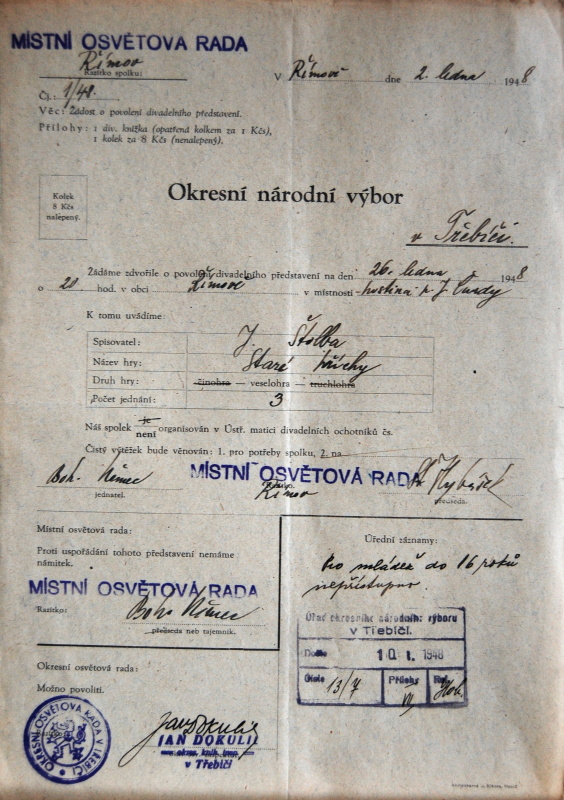 MÍSTNÍ OSVĚTOVÁ RADA
Římov
Razítko spolku:
V Římově dne 2. ledna 1948
Čj.: 1/48.
Věc: Žádost o povolení divadelního představení.
Přílohy: 1 div. knížka (opatřená kolkem za 1 Kčs),
1 kolek za 8 Kčs (nenalepený).
Kolek
8 Kčs
nalepený.
Okresní národní výbor
v Třebíči.
Žádáme zdvořile o povolení divadelního představení na den 26. ledna 1948
o 20 hod. v obci Římově v místnosti hostinci p. J.
K tomu uvádíme:
Spisovatel: J. Štolba
Název hry: Staré hříchy
Druh hry: činohra — veselohra — truchlohra
Počet jednání: 3
Náš spolek je
není organisován v Ústř. matici divadelních ochotníků čs.
Čistý výtěžek bude věnován: 1. pro potřeby spolku, 2. na
Boh. Němec MÍSTNÍ OSVĚTOVÁ RADA
jednatel. Razítko. Římov předseda.
Místní osvětová rada:
Proti uspořádání tohoto představení nemáme
námitek.
MÍSTNÍ OSVĚTOVÁ RADA
Razítko: Boh. Němec
předseda neb tajemník.
Úřední záznamy:
Pro mládež do 16 roků
nepřístupno.
Úřad okresního národního výboru
v Třebíči.
Došlo 10. I. 1948
Číslo 13/7 Přílohy Ref.
Okresní osvětová rada:
Možno povoliti.
OKRESNÍ OSVĚTOVÁ RADA V TŘEBÍČI
Jan Dokulil
JAN DOKULIL
okres. knih. insp.
v Třebíči